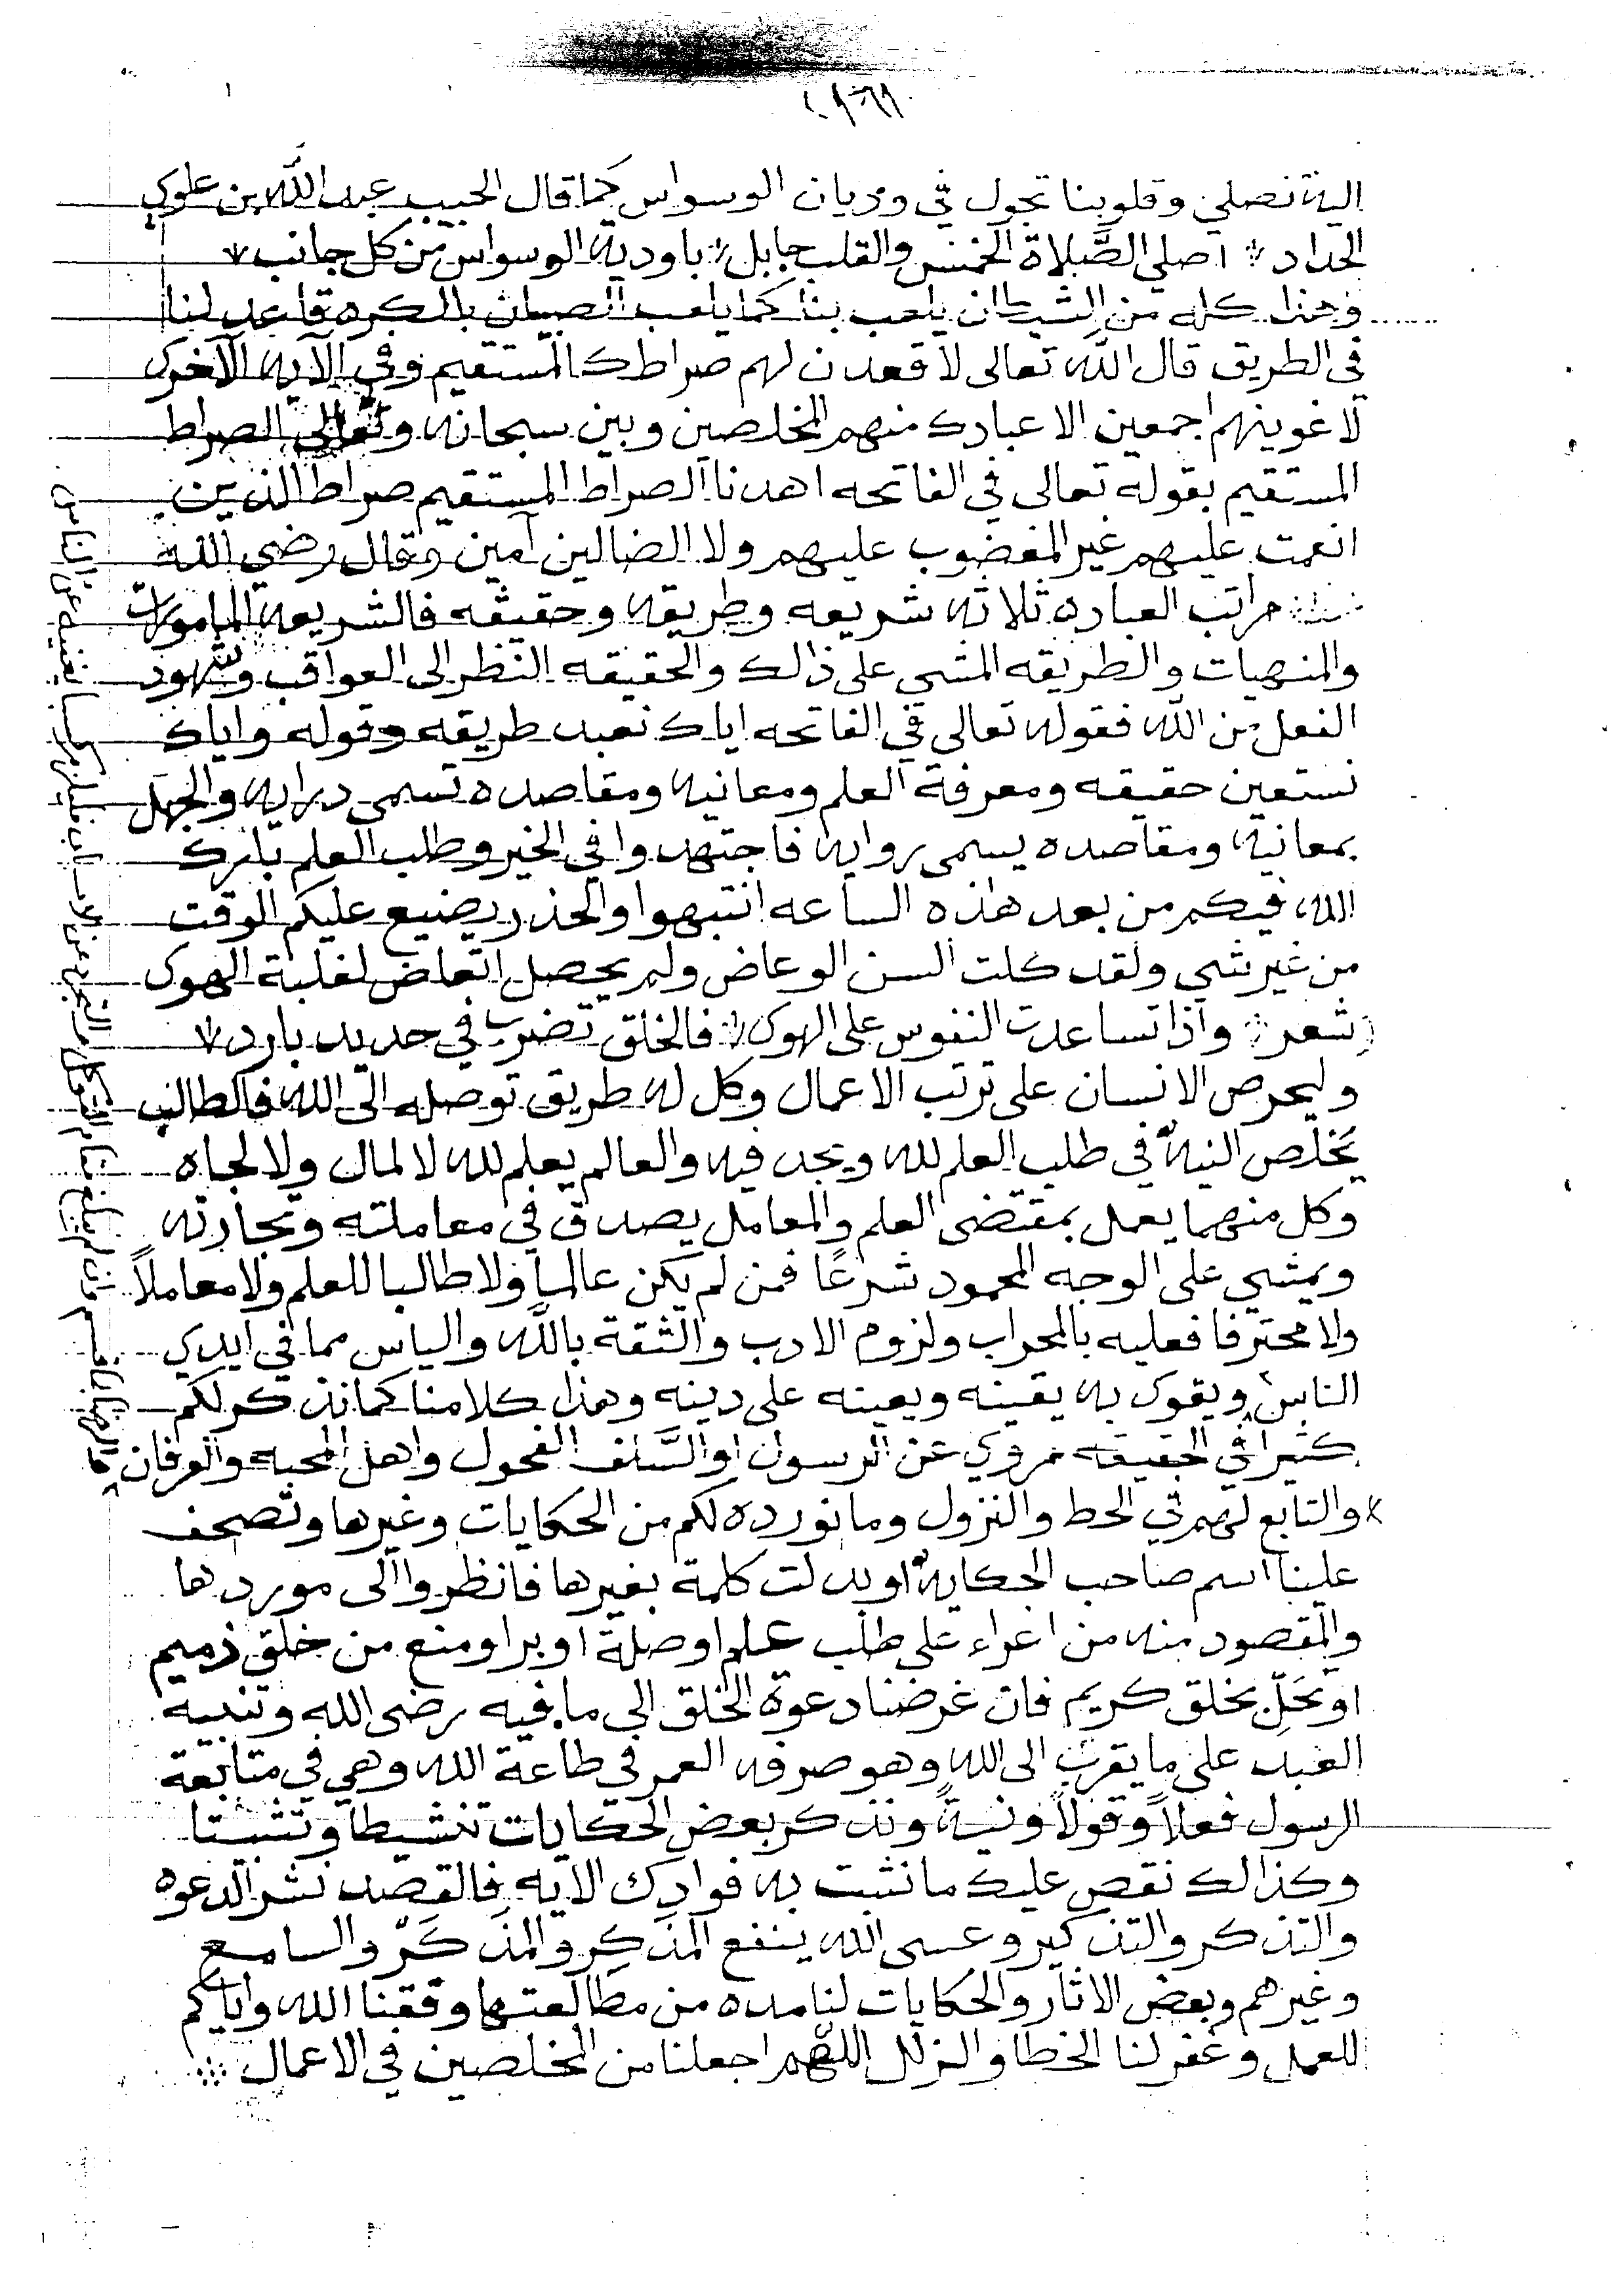 اليه نصلي وقلوبنا تجول في وديان الوسواس كما قال الحبيب عبد الله بن علوي
الحداد * اصلي الصلاة الخمس والقلب جايل * باودية الوسواس من كل جانب *
وهذا كله من الشيطان يلعب بنا كما يلعب الصبيان بالكره قاعد لنا
في الطريق قال الله تعالى لاقعدن لهم صراطك المستقيم وفي الآيه الآخرى
لاغوينهم اجمعين الا عبادك منهم المخلصين وبين سبحانه وتعالى الصراط
المستقيم بقوله تعالى في الفاتحه اهدنا الصراط المستقيم صراط الذين
انعمت عليهم غير المغضوب عليهم ولا الضالين آمين وقال رضي الله
مراتب العباده ثلاثه شريعه وطريقه وحقيقه فالشريعه المامورات
والمنهيات والطريقه المشي على ذالك والحقيقه النظر الى العواقب وشهود
الفعل من الله فقوله تعالى في الفاتحه اياك نعبد طريقه وقوله واياك
نستعين حقيقه ومعرفة العلم ومعانيه ومقاصده تسمى درايه والجهل
بمعانيه ومقاصده يسمى روايه فاجتهدوا في الخير وطلب العلم بارك
الله فيكم من بعد هاذه الساعه انتبهوا والحذر يضيع عليكم الوقت
من غير شي ولقد كلت السن الوعاض ولم يحصل اتعاض لغلبة الهوى
شعر * واذا تساعدت النفوس على الهوى * فالخلق تضرب في حديد بارد *
وليحرص الانسان على ترتب الاعمال وكل له طريق توصله الى الله فالطالب
يخلص النيه في طلب العلم لله ويجد فيه والعالم يعلم لله لا لمال ولا لجاه
وكل منهما يعمل بمقتضى العلم والمعامل يصدق في معاملته وتجارته
ويمشي على الوجه المحمود شرعًا فمن لم يكن عالما ولا طالبا للعلم ولا معاملاً
ولا محترفا فعليه بالمحراب ولزوم الادب والثقة بالله والياس مما في ايدي
الناس ويقوى به يقينه ويعينه على دينه وهذا كلامنا كما نذكر لكم
كثيرا في الحقيقه مروي عن الرسول او السَّلف الفحول واهل المحبه والعرفان
والتابع لهم في الحط والنزول وما نورده لكم من الحكايات وغيرها وتصحف
علينا اسم صاحب الحكايه او بدلت كلمة بغيرها فانظروا الى موردها
والمقصود منه من اغراء على طلب علم او صلة او برا ومنع من خلق ذميم
او تحَلِّ بخلق كريم فان غرضنا دعوة الخلق الى ما فيه رضى الله وتنبيه
العبد على ما يقرب الى الله وهو صرفه العمر في طاعة الله وهي في متابعة
الرسول فعلاً وقولاً ونيةً ونذكر بعض الحكايات تنشيطا وتثبيتا
وكذالك نقص عليك ما نثبت به فوادك الايه فالقصد نشر الدعوه
والتذكر والتذكير وعسى الله ينفع المذكِر والمذَكَّر والسامع
وغيرهم وبعض الاثار والحكايات لنا مده من مطالعتها وفقنا الله واياكم
للعمل وغفر لنا الخطا والزلل اللهم اجعلنا من المخلصين في الاعمال